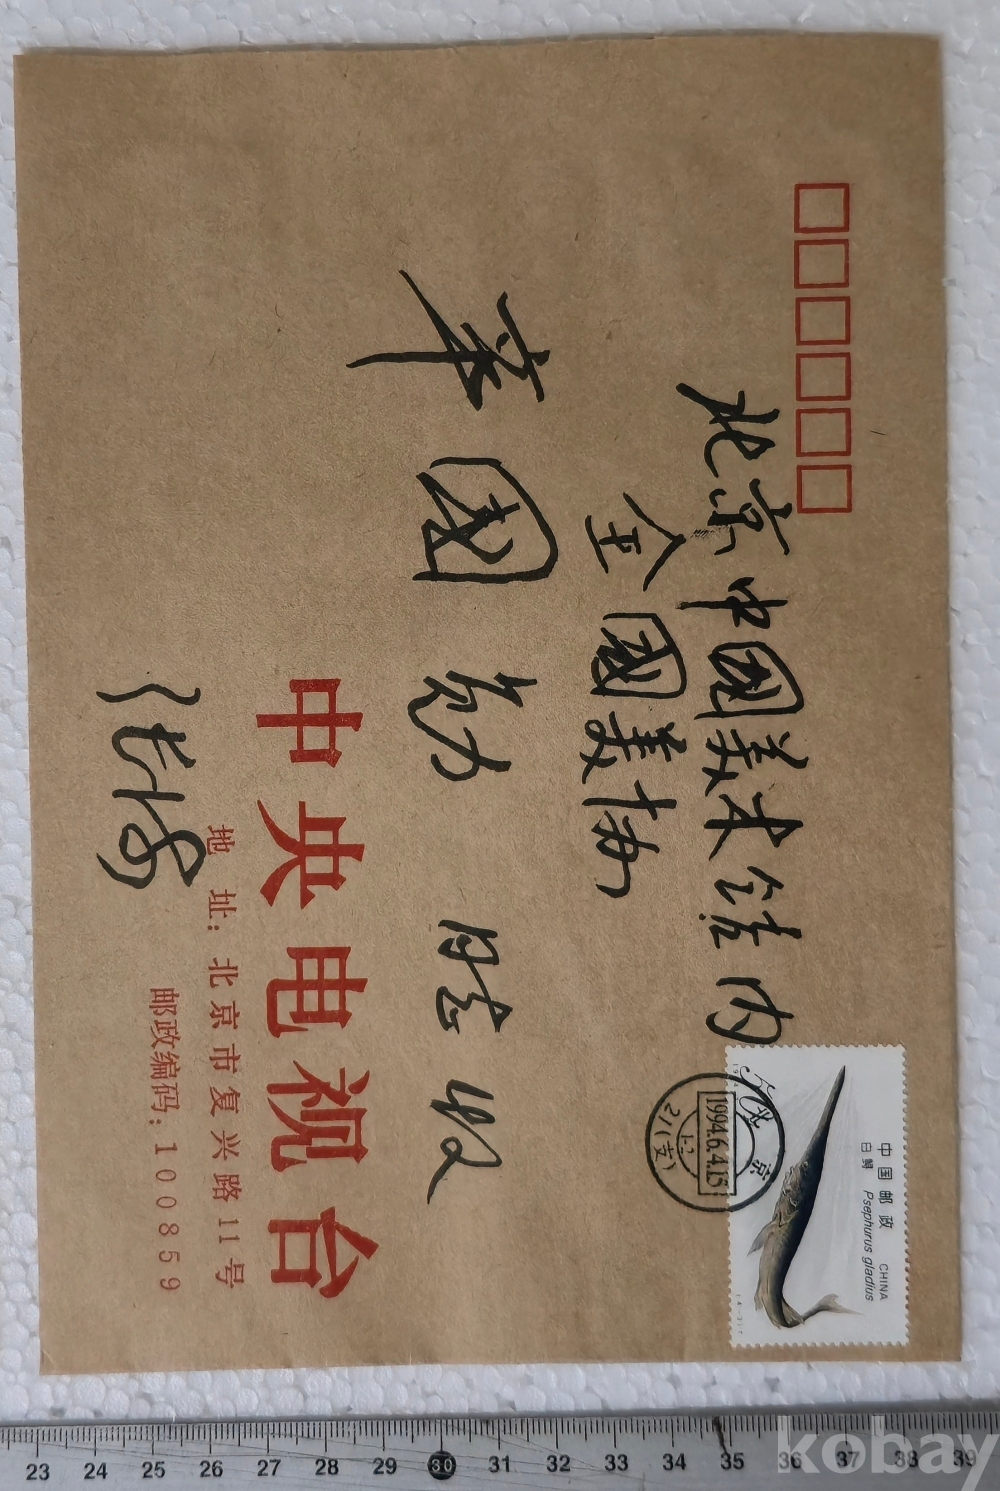 北京中国美术馆内
全国美协
華国勋 同志 收
中国邮政 CHINA
白鲟 Psephurus gladius
北京
1994.6.4.15
12
21(支)
中央电视台
地址:北京市复兴路11号
邮政编码:100859
23 24 25 26 27 28 29 30 31 32 33 34 35 36 37 38 39
kobay